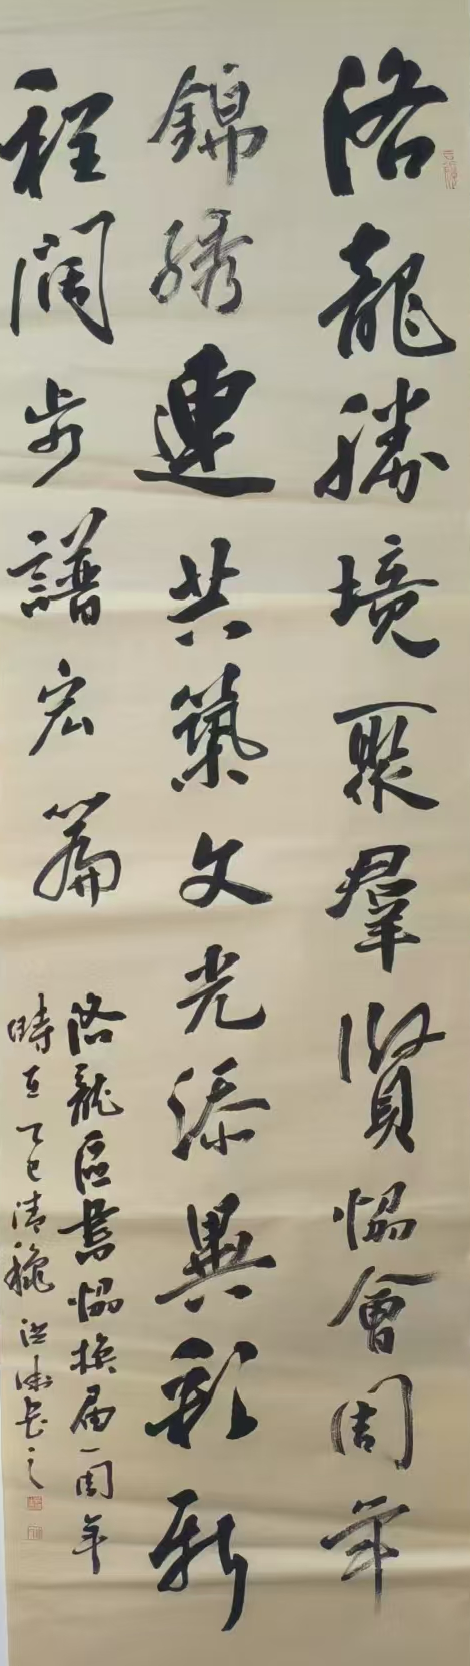 洛龍勝境聚羣賢協會周年
錦綉連共築文光添異彩新
程闊步譜宏篇
洛龍區書協換屆一周年
時在乙巳清穐